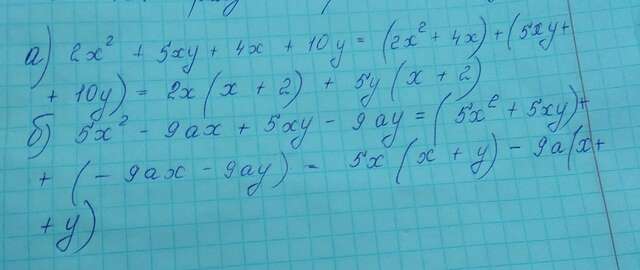 а) 2x² + 5xy + 4x + 10y = (2x² + 4x) + (5xy +
+ 10y) = 2x (x + 2) + 5y (x + 2)
б) 5x² - 9ax + 5xy - 9ay = (5x² + 5xy) +
+ (- 9ax - 9ay) = 5x (x + y) - 9a (x +
+ y)